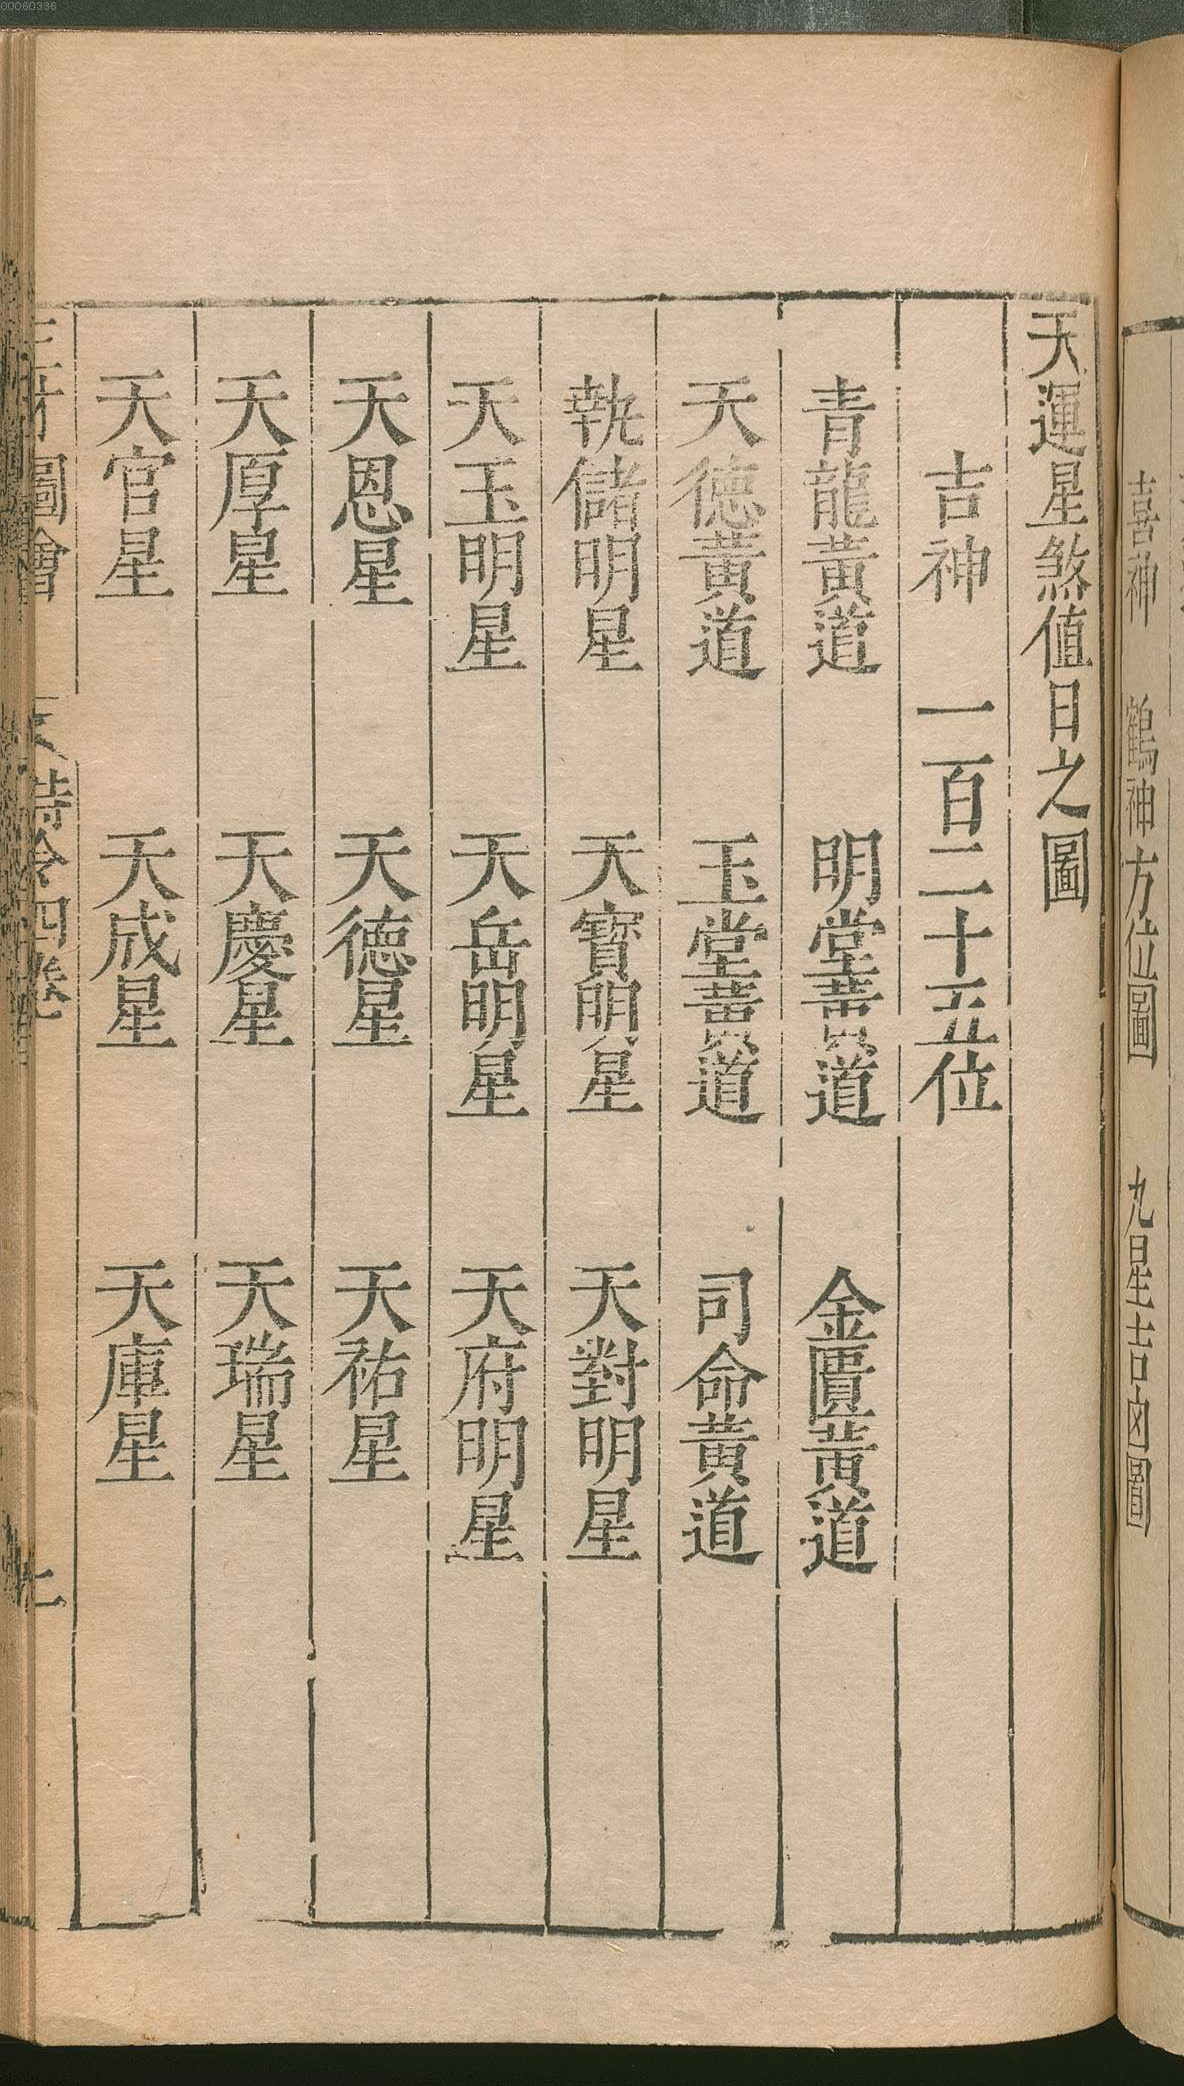 00060336
喜神　鶴神方位圖　九星吉凶圖
天運星煞值日之圖
吉神　一百二十五位
青龍黃道　明堂黃道　金匱黃道
天德黃道　玉堂黃道　司命黃道
執儲明星　天寶明星　天對明星
天玉明星　天岳明星　天府明星
天恩星　天德星　天祐星
天厚星　天慶星　天瑞星
天官星　天成星　天庫星
圖會　時令四卷